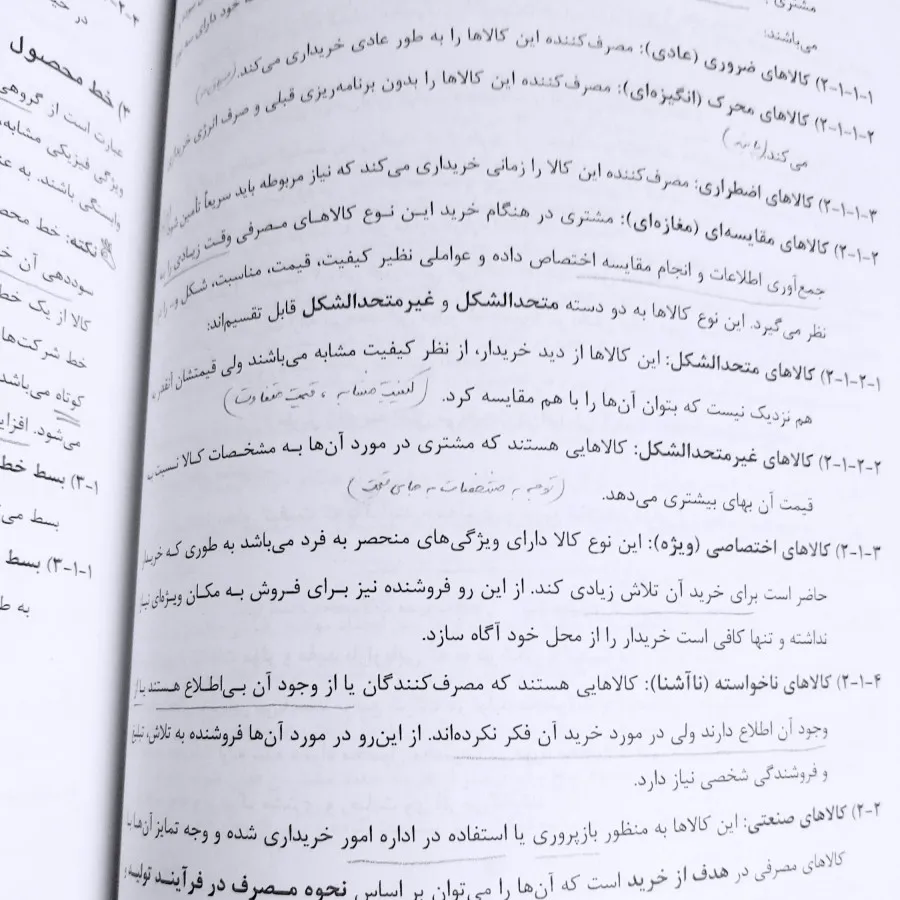 مشتری
می‌باشند:
۲-۱-۱-۱) کالاهای ضروری (عادی): مصرف‌کننده این کالاها را به طور عادی خریداری می‌کند.
۲-۱-۱-۲) کالاهای محرک (انگیزه‌ای): مصرف‌کننده این کالاها را بدون برنامه‌ریزی قبلی و صرف انرژی
می کند.
۲-۱-۱-۳) کالاهای اضطراری: مصرف‌کننده این کالا را زمانی خریداری می‌کند که نیاز مربوطه باید سریعاً تأمین شود
۲-۱-۲) کالاهای مقایسه‌ای (مغازه‌ای): مشتری در هنگام خرید این نوع کالاهای مصرفی وقت زیادی را
جمع‌آوری اطلاعات و انجام مقایسه اختصاص داده و عواملی نظیر کیفیت، قیمت، مناسبت، شکل و
نظر می‌گیرد. این نوع کالاها به دو دسته متحدالشکل و غیرمتحدالشکل قابل تقسیم‌اند:
۲-۱-۲-۱) کالاهای متحدالشکل: این کالاها از دید خریدار، از نظر کیفیت مشابه می‌باشند ولی قیمتشان آنقدر
هم نزدیک نیست که بتوان آن‌ها را با هم مقایسه کرد. (کیفیت مشابه ، قیمت متفاوت)
۲-۱-۲-۲) کالاهای غیرمتحدالشکل: کالاهایی هستند که مشتری در مورد آن‌ها به مشخصات کالا نسبت به
قیمت آن بهای بیشتری می‌دهد. (توجه به مشخصات به جای قیمت)
۲-۱-۳) کالاهای اختصاصی (ویژه): این نوع کالا دارای ویژگی‌های منحصر به فرد می‌باشد به طوری که خریدار
حاضر است برای خرید آن تلاش زیادی کند. از این رو فروشنده نیز برای فروش به مکان ویژه‌ای نیاز
نداشته و تنها کافی است خریدار را از محل خود آگاه سازد.
۲-۱-۴) کالاهای ناخواسته (ناآشنا): کالاهایی هستند که مصرف‌کنندگان یا از وجود آن بی‌اطلاع هستند یا از
وجود آن اطلاع دارند ولی در مورد خرید آن فکر نکرده‌اند. از این‌رو در مورد آن‌ها فروشنده به تلاش، تبلیغ
و فروشندگی شخصی نیاز دارد.
۲-۲) کالاهای صنعتی: این کالاها به منظور بازپروری یا استفاده در اداره امور خریداری شده و وجه تمایز آن‌ها با
کالاهای مصرفی در هدف از خرید است که آن‌ها را می‌توان بر اساس نحوه مصرف در فرآیند تولید و
۳) خط محصول
عبارت است از گروهی
ویژگی فیزیکی مشابه،
وابستگی باشند. به
نکته: خط
سوددهی آن
کالا از یک خط
خط شرکت‌ها
کوتاه می‌باشد
می‌شود.
۳-۱) بسط خط
بسط
۳-۱-۱) بسط
به